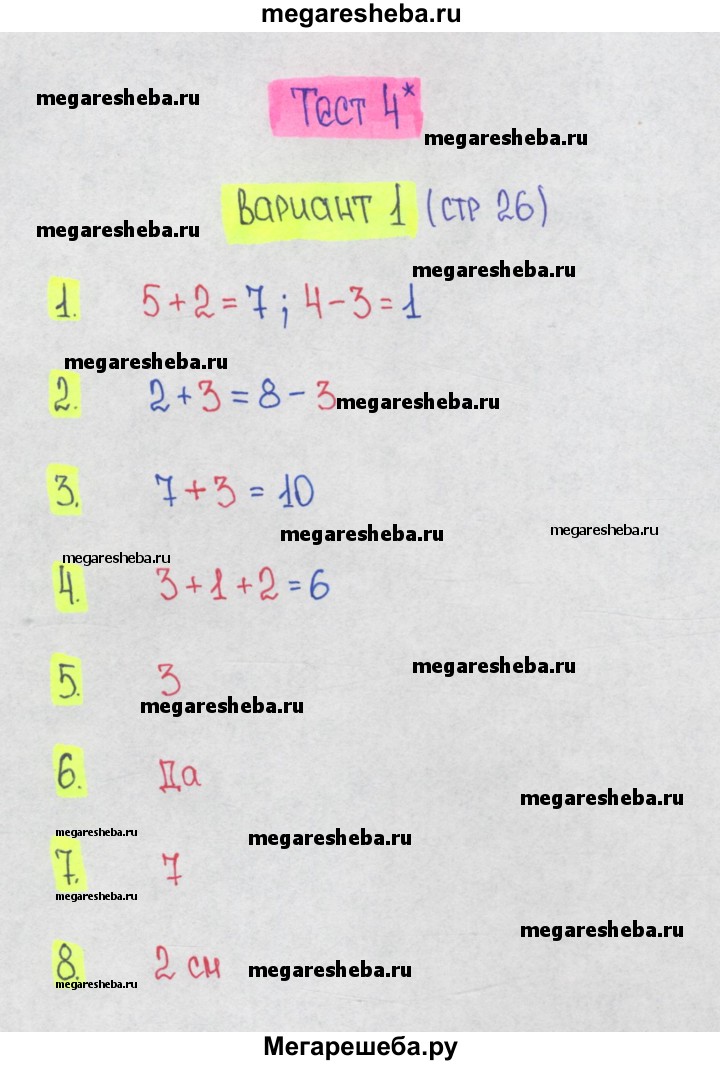 megaresheba.ru
megaresheba.ru
Тест 4*
megaresheba.ru
Вариант 1 (стр 26)
megaresheba.ru
megaresheba.ru
1. 5+2=7; 4-3=1
megaresheba.ru
2. 2+3=8-3
megaresheba.ru
3. 7+3=10
megaresheba.ru
megaresheba.ru
megaresheba.ru
4. 3+1+2=6
megaresheba.ru
5. 3
megaresheba.ru
6. Да
megaresheba.ru
megaresheba.ru
megaresheba.ru
7. 7
megaresheba.ru
megaresheba.ru
8. 2 см
megaresheba.ru
megaresheba.ru
Мегарешеба.ру